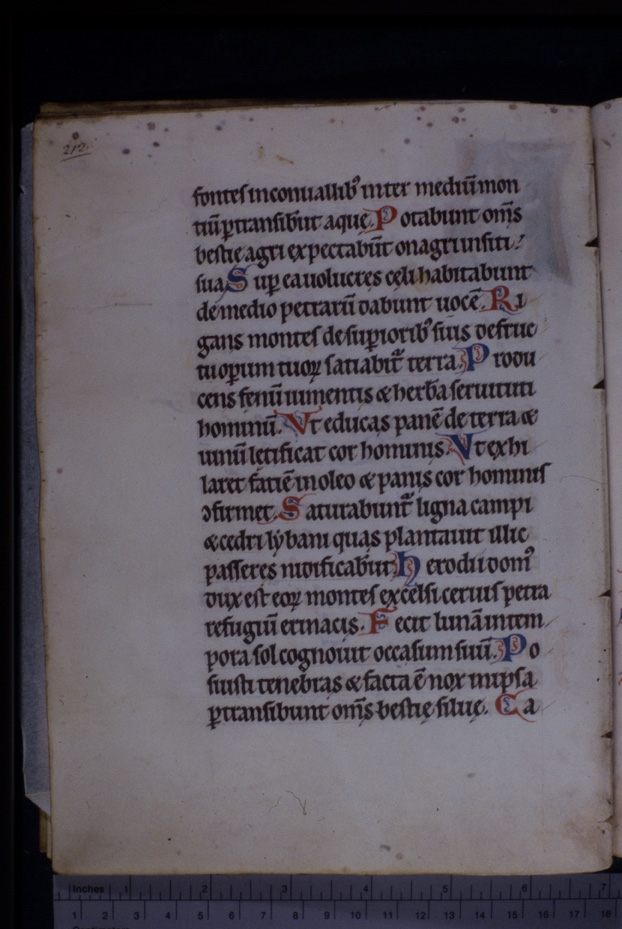 212.
fontes inconuallibꝰ inter mediū mon
tiū ꝑtransibūt aquę. Potabunt om̄s
bestię agri expectabūt onagri insiti
sua Suꝑ ea uolucres cęli habitabunt
de medio petrarū dabunt uocē. Ri
gans montes de suꝑioribꝰ suis de fruc
tu operum tuoꝝ satiabit᷑ terra. Produ
cens fenū iumentis & herƀa seruituti
hominū. Vt educas panē de terra &
uinū letificat cor hominis Vt exhi
laret faciē in oleo & panis cor hominis
ↄfirmet. Saturabunt᷑ ligna campi
& cedri lybani quas plantauit illic
passeres nidificabūt Herodii domꝰ
dux est eoꝝ montes excelsi ceruis petra
refugiū erinacis. Fecit lunā in tem
pora sol cognouit occasum suū. Po
suisti tenebras & facta ē nox in ipsa
ꝑtransibunt om̄s bestię siluę. Ca
Inches 1 2 3 4 5 6 7
1 2 3 4 5 6 7 8 9 10 11 12 13 14 15 16 17 18